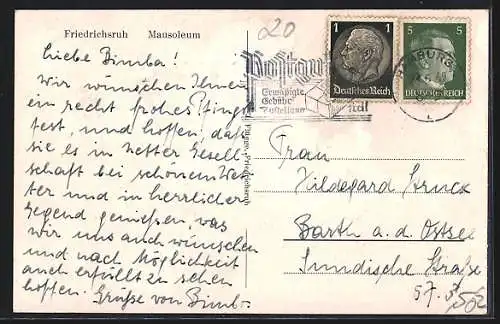 Friedrichsruh Mausoleum
20
Liebe Bimba!
Wir wünschen Ihnen
ein recht frohes Pfingst
fest, und hoffen, daß
sie es in netter Gesell-
schaft bei schönem Wet-
ter und in herrlicher
Gegend genießen was
wir uns auch wünschen
und nach Möglichkeit
auch erfüllt zu sehen
hoffen. Grüße von
Postgut
Ermäßigte
Gebühr
1 1
Deutsches Reich
5 5
DEUTSCHES REICH
HAMBURG
Frau
Hildegard Struck
Barth a. d. Ostsee
Sundische Straße
57.